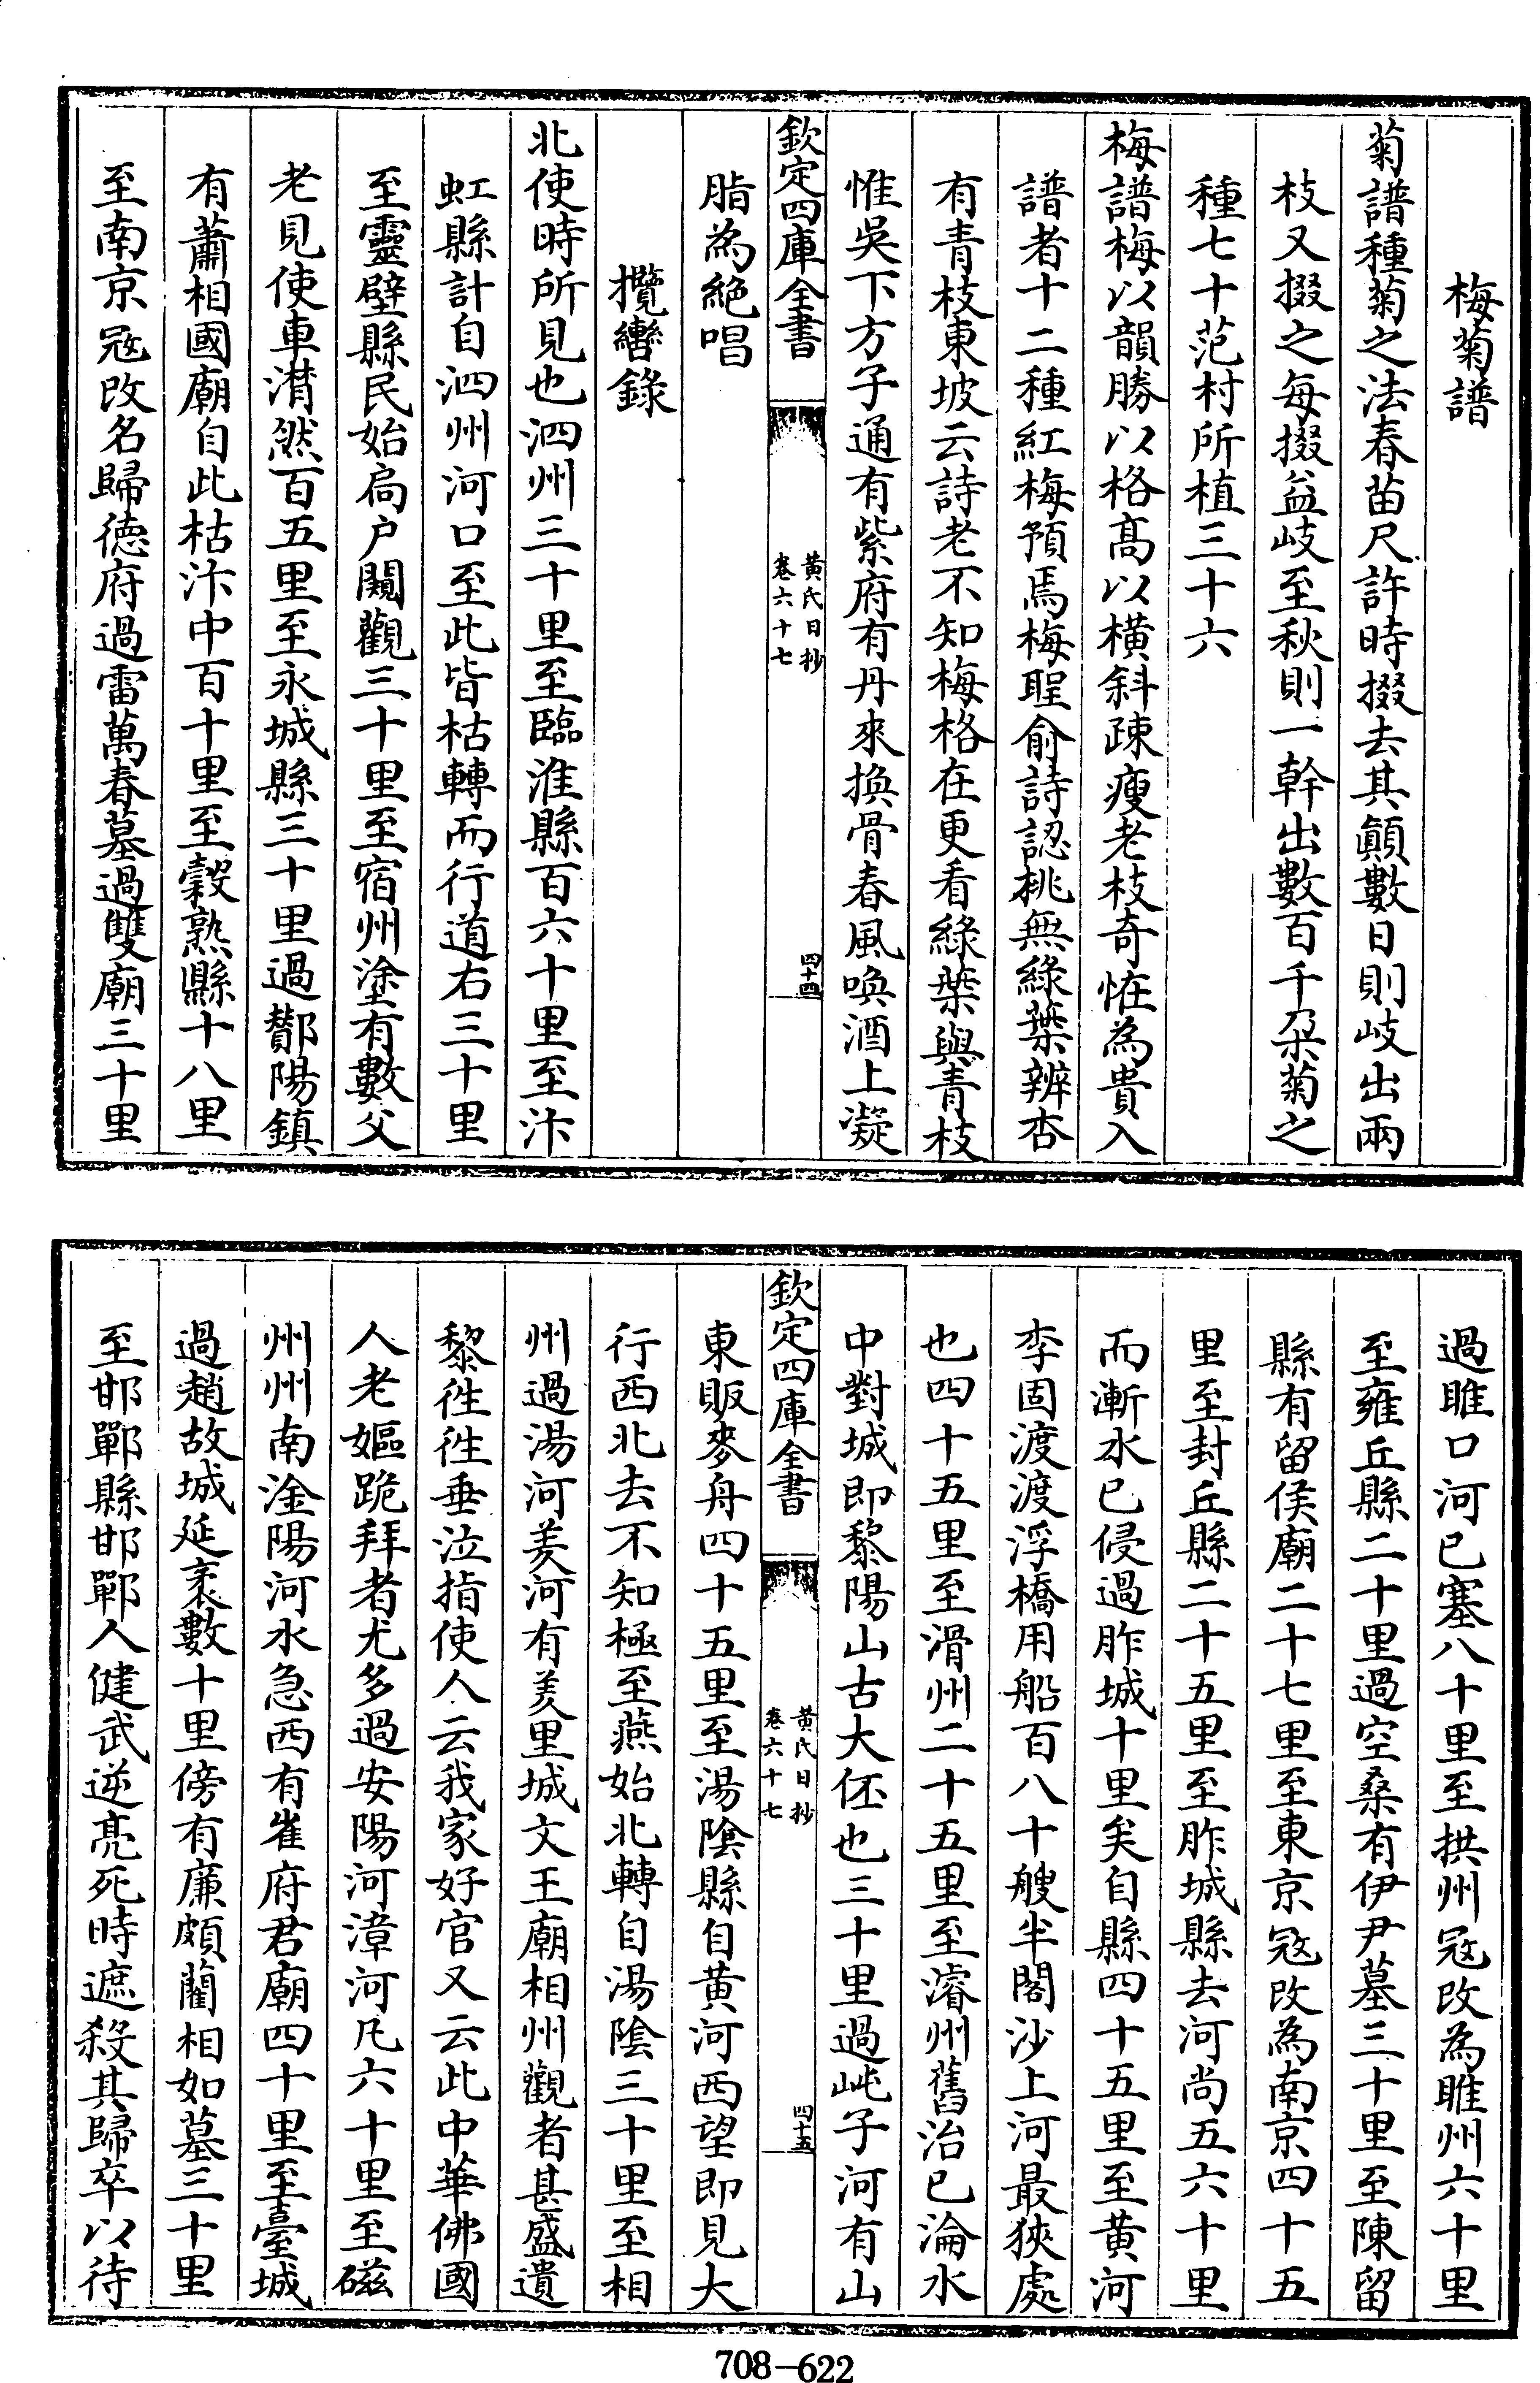 梅菊譜
菊譜種菊之法春苗尺許時掇去其顛數日則岐出兩
枝又掇之每掇益岐至秋則一幹出數百千朶菊之
種七十范村所植三十六
梅譜梅以韻勝以格髙以橫斜疎瘦老枝竒恠為貴入
譜者十二種紅梅預焉梅聖俞詩認桃無綠葉辨杏
有青枝東坡云詩老不知梅格在更看綠葉與青枝
惟吳下方子通有紫府有丹來換骨春風喚酒上凝
欽定四庫全書
黃氏日抄
卷六十七
四十四
脂為絶唱
攬轡錄
北使時所見也泗州三十里至臨淮縣百六十里至汴
虹縣計自泗州河口至此皆枯轉而行道右三十里
至靈壁縣民始扃户闚觀三十里至宿州塗有數父
老見使車潸然百五里至永城縣三十里過酇陽鎮
有蕭相國廟自此枯汴中百十里至糓熟縣十八里
至南京冦改名歸徳府過雷萬春墓過雙廟三十里
過睢口河已塞八十里至拱州冦改為睢州六十里
至雍丘縣二十里過空桑有伊尹墓三十里至陳留
縣有留侯廟二十七里至東京冦改為南京四十五
里至封丘縣二十五里至胙城縣去河尚五六十里
而漸水已侵過胙城十里矣自縣四十五里至黃河
李固渡渡浮橋用船百八十艘半閣沙上河最狹處
也四十五里至滑州二十五里至濬州舊治已淪水
中對城即黎陽山古大伾也三十里過屼子河有山
欽定四庫全書
黃氏日抄
卷六十七
四十五
東販麥舟四十五里至湯隂縣自黃河西望即見大
行西北去不知極至燕始北轉自湯隂三十里至相
州過湯河羑河有羑里城文王廟相州觀者甚盛遺
黎徃徃垂泣指使人云我家好官又云此中華佛國
人老嫗跪拜者尤多過安陽河漳河凡六十里至磁
州州南滏陽河水急西有崔府君廟四十里至臺城
過趙故城延袤數十里傍有亷頗藺相如墓三十里
至邯鄲縣邯鄲人健武逆亮死時遮殺其歸卒以待
708-622